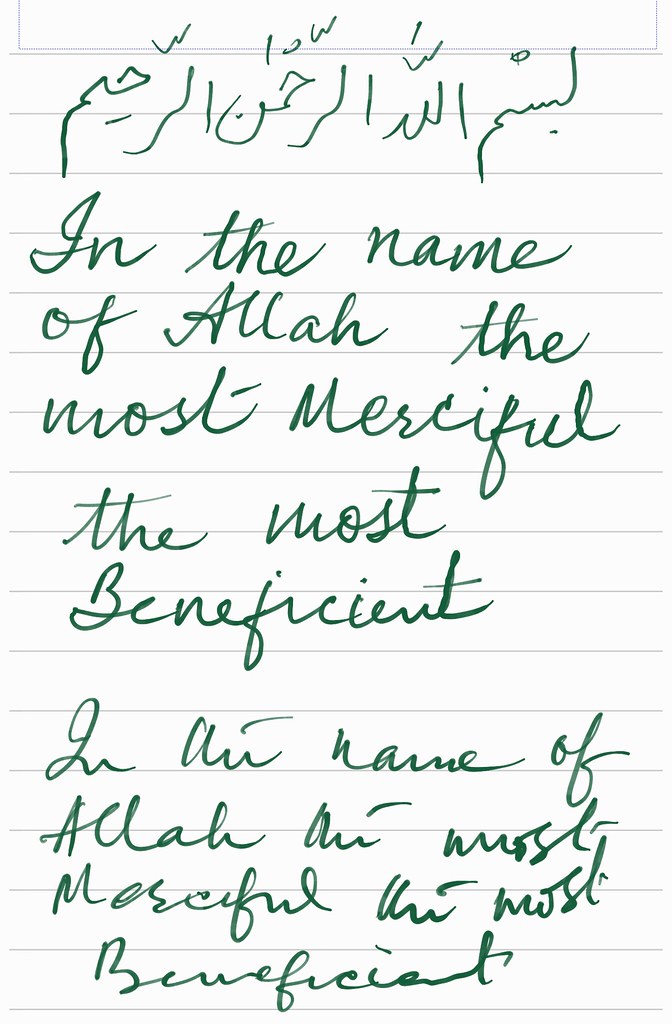 بِسْمِ اللّٰهِ الرَّحْمٰنِ الرَّحِيم
In the name
of Allah the
most Merciful
the most
Beneficient
In the name of
Allah the most
Merciful the most
Beneficient